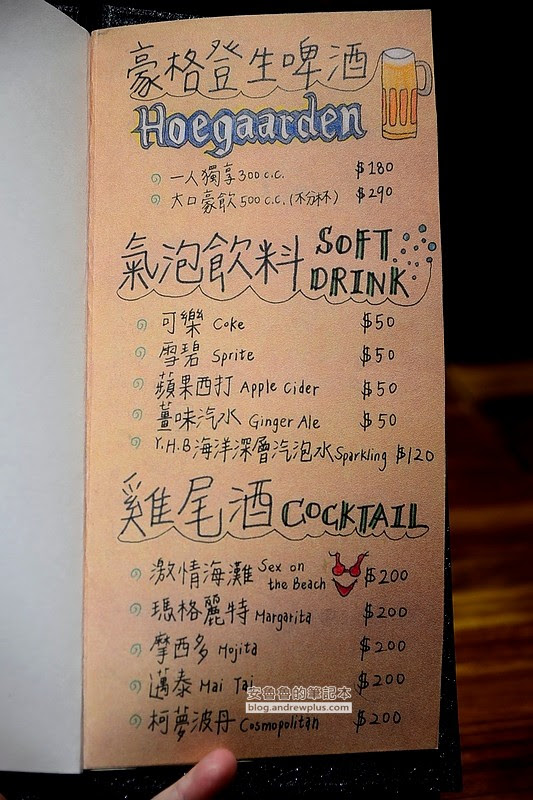 豪格登生啤酒
Hoegaarden
一人獨享 300 c.c. $180
大口豪飲 500 c.c. (不分杯) $290
氣泡飲料 SOFT DRINK
可樂 Coke $50
雪碧 Sprite $50
蘋果西打 Apple Cider $50
薑味汽水 Ginger Ale $50
Y.H.B 海洋深層汽泡水 Sparkling $120
雞尾酒 COCKTAIL
激情海灘 Sex on the Beach $200
瑪格麗特 Margarita $200
摩西多 Mojita $200
邁泰 Mai Tai $200
柯夢波丹 Cosmopolitan $200
安魯魯的筆記本
blog.andrewplus.com